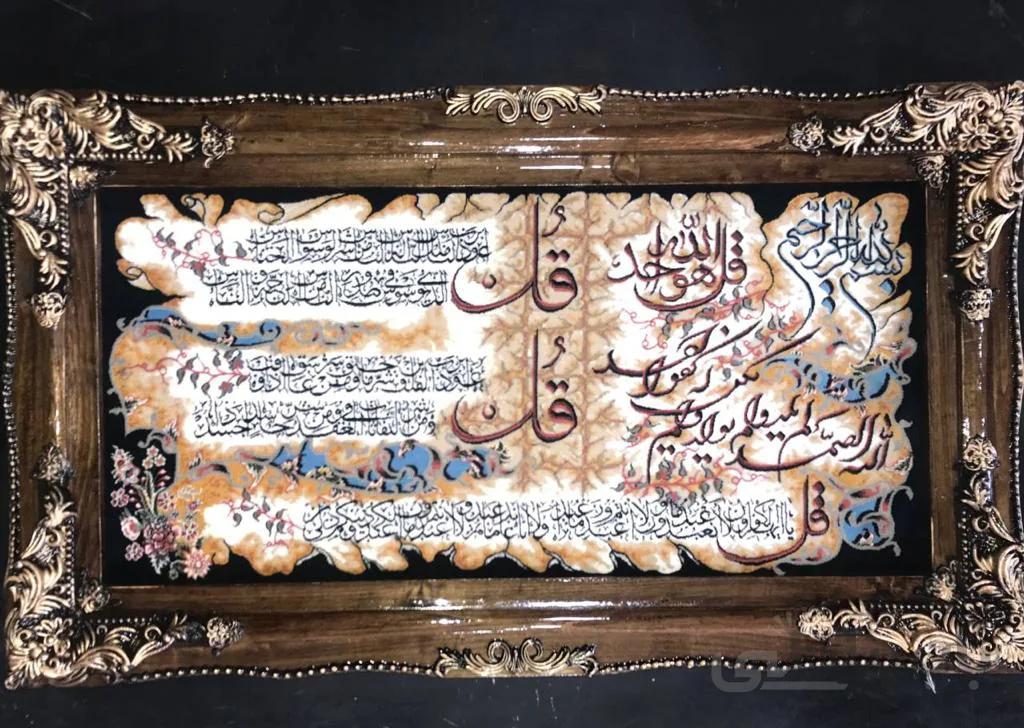 بسم الله الرحمن الرحیم
قل هو الله احد
الله الصمد لم یلد ولم یولد
ولم یکن له کفوا احد
قل اعوذ برب الناس ملك الناس اله الناس من شر الوسواس الخناس
الذی یوسوس فی صدور الناس من الجنة و الناس
قل اعوذ برب الفلق من شر ما خلق و من شر غاسق اذا وقب
و من شر النفاثات فی العقد و من شر حاسد اذا حسد
قل یا ایها الکافرون لا اعبد ما تعبدون ولا انتم عابدون ما اعبد ولا انا عابد ما عبدتم ولا انتم عابدون ما اعبد لکم دینکم ولی دین